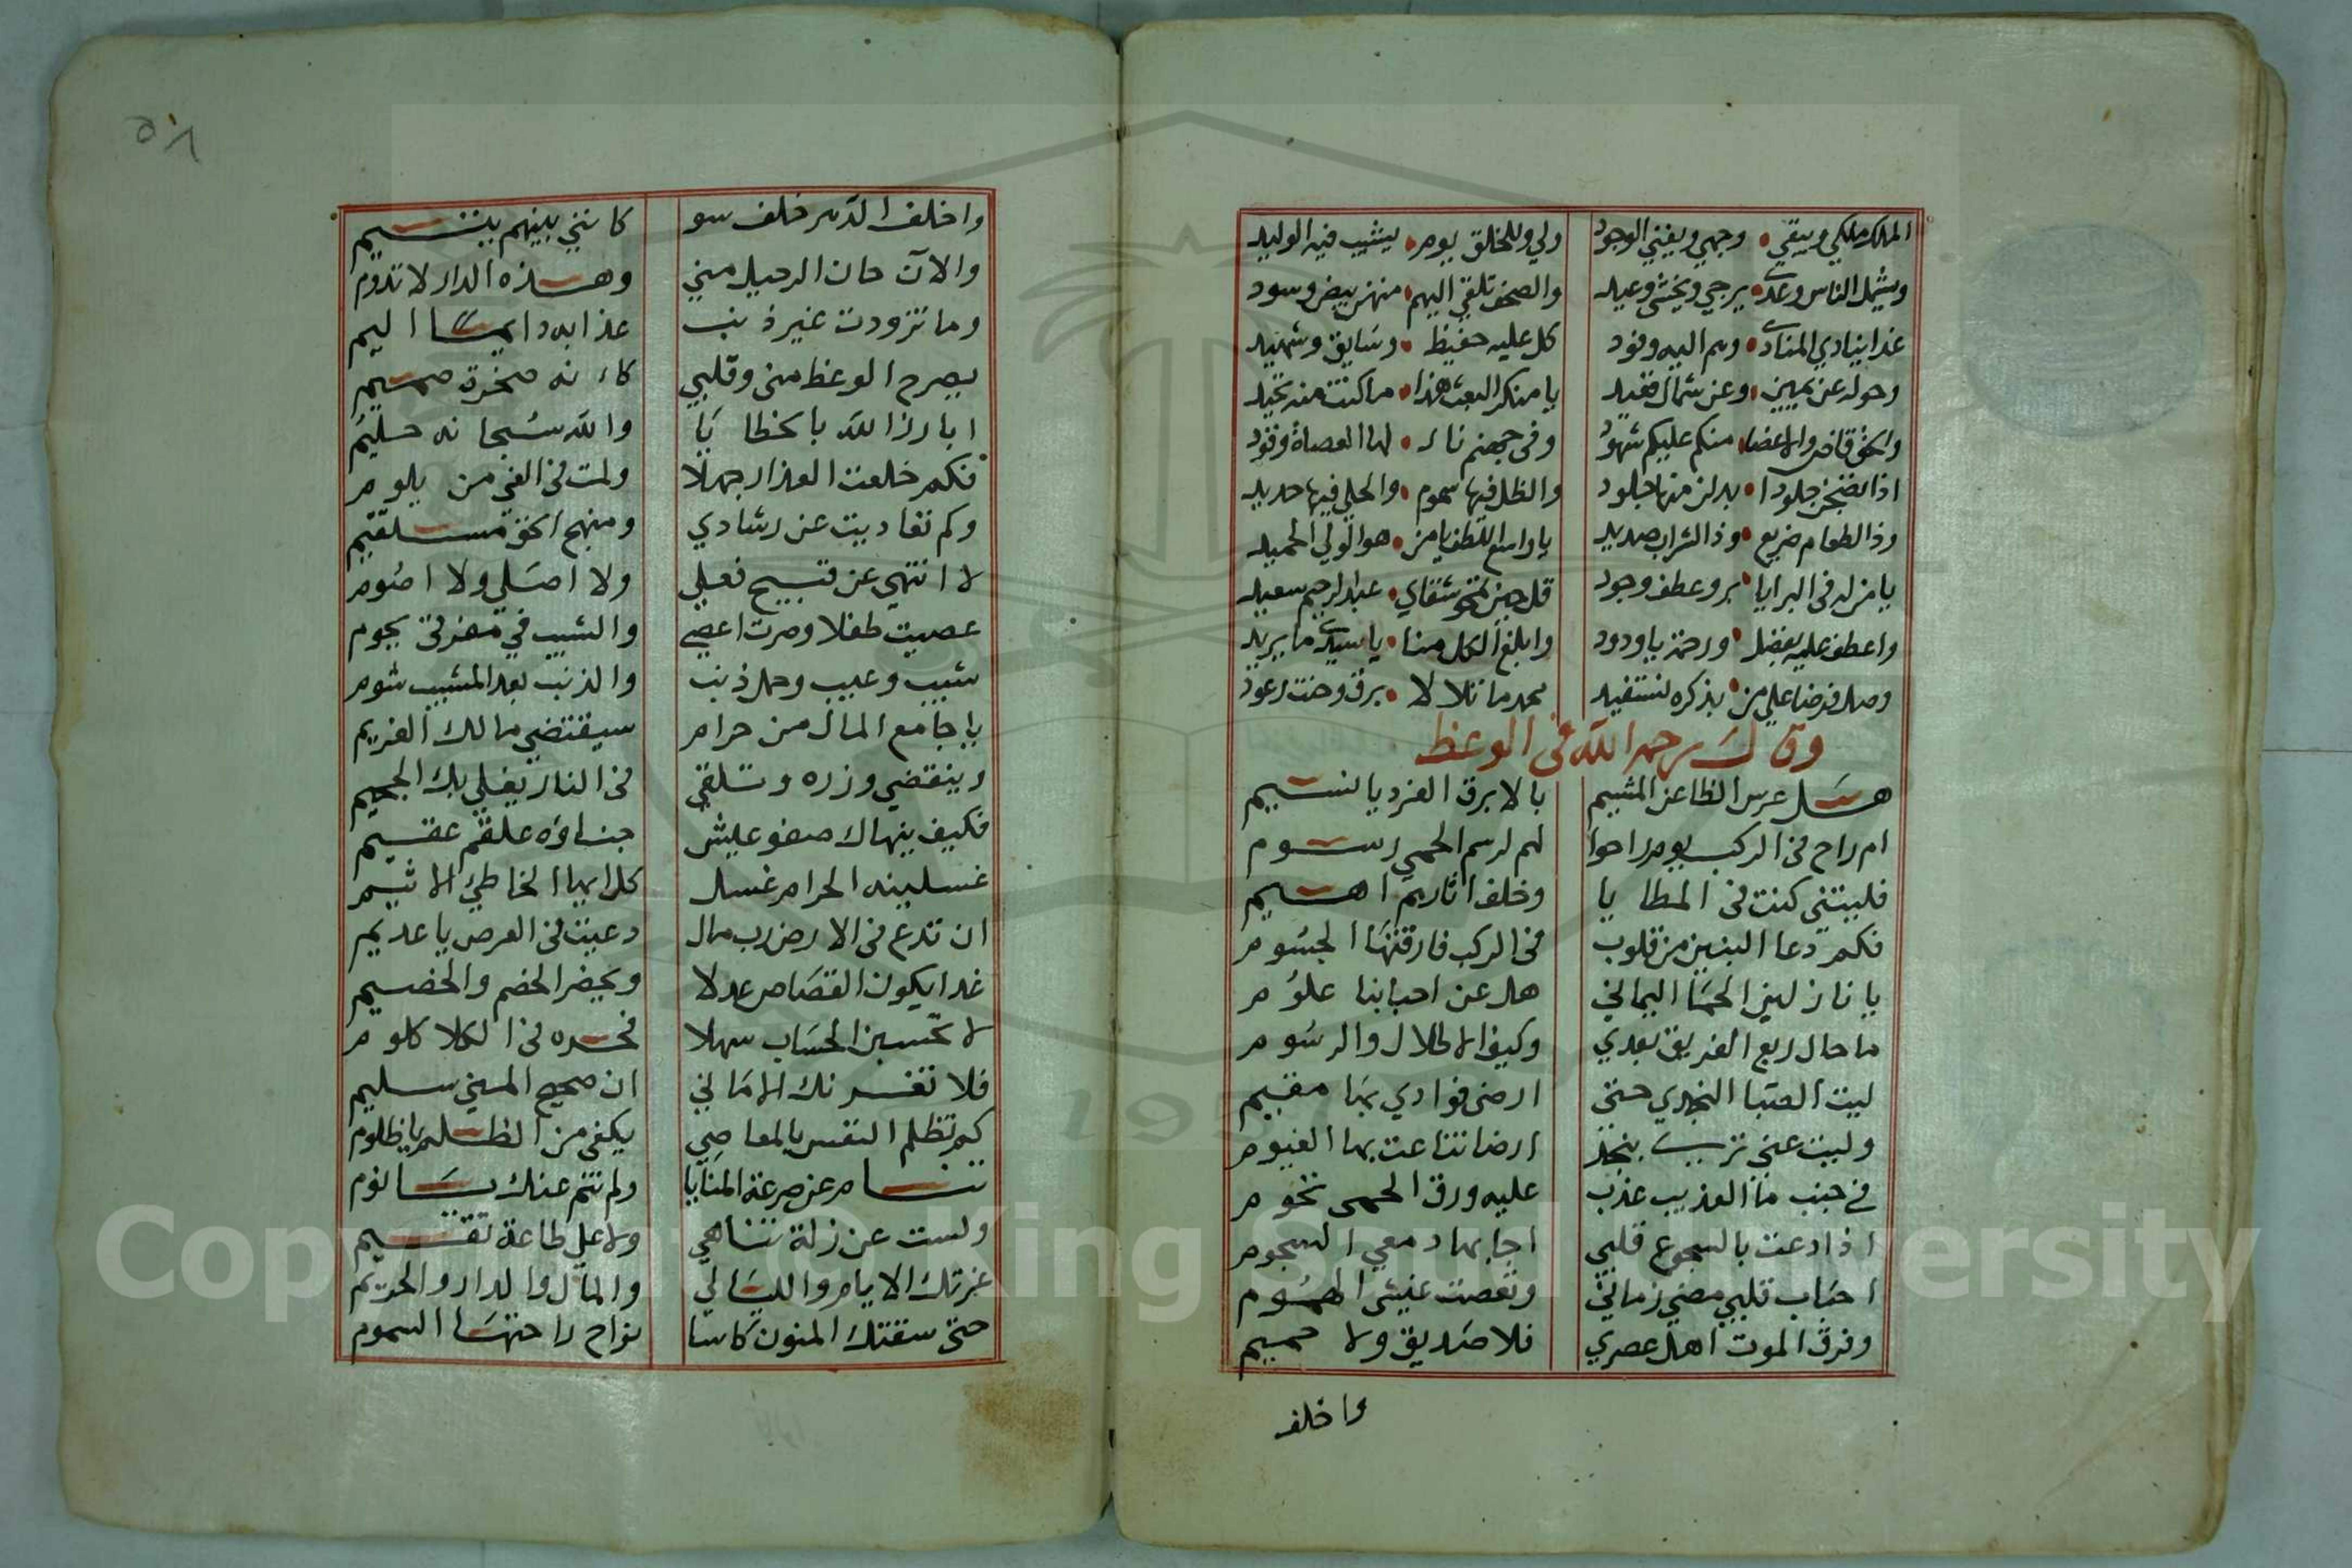 الملك ملكي ويبقي • وجهي ويفني الوجود ولي وللخلق يوم • يشيب فيه الوليد
ويشمل الناس وعدي • يرجي ويخشي وعيد والصحف تلقي اليهم • منهن بيض وسود
غدا ينادي المنادي • وهم اليه وفود كل عليه حفيظ • وسايق وشهيد
وحوله عن يمين • وعن شمال قعيد يا منكر البعث هذا • ما كنت منه تحيد
والحق قاض والاعضا • منكم عليكم شهود وفي جهنم نار • لها العصاة وقود
اذا نضجن جلودا • بدلن منها جلود والظل فيها سموم • والحلي فيها حديد
وذا الطعام ضريع • وذا الشراب صديد يا واسع اللطف يا من • هو الولي الحميد
يا من له في البرايا • بر وعطف وجود قل حين تمحو شقاي • عبد الرحيم سعيد
واعطف عليه بفضل • ورحمة يا ودود وابلغ الكل منا • يا سيدي ما يريد
وصل فرضا علي من • بذكره نستفيد محمد ما تلالا • برق وحنت رعود
وقال رحمه الله في الوعظ
هل عرس الظاعن المشيم بالابرق الفرد يا نسيم
ام راح في الركب يوم راحوا لهم لرسم الحمي رسوم
فليتني كنت في المطايا وخلف اثارهم اهيم
فكم دعا البين من قلوب في الركب فارقتها الجسوم
يا نازلين الحما اليماني هل عن احبابنا علوم
ما حال ربع الفريق بعدي وكيف الاطلال والرسوم
ليت الصبا النجدي حتي ارض فوادي بها مقيم
وليت عني ترب بنجد ارضا تناعت بها الغيوم
في جنب ما العذيب عذب عليه ورق الحمى تحوم
اذا دعت بالسجوع قلبي اجابها دمعي السجوم
احباب قلبي مضي زماني ونغصت عيشى الهموم
وفرق الموت اهل عصري فلا صديق ولا حميم
واخلف
٥٨
واخلف الدهر خلف سو كانني بينهم يتيم
والان حان الرحيل مني وهذه الدار لا تدوم
وما تزودت غير ذنب عذابه دايما اليم
يصرح الوعظ منى وقلبي كانه صخرة صميم
ابارز الله بالخطايا والله سبحانه حليم
فكم خلعت العذار جهلا ولمت في الغي من يلوم
وكم تعاديت عن رشادي ومنهج الحق مستقيم
لا انتهي عن قبيح فعلي ولا اصلي ولا اصوم
عصيت طفلا وصرت اعصي والشيب في مفرقي يحوم
شيب وعيب وحمل ذنب والذنب بعد المشيب شوم
يا جامع المال من حرام سيقتضي مالك الغريم
وينقضي وزره وتلقي في النار يغلي بك الجحيم
فكيف ينهاك صفو عيش جناوه علقم عقيم
غسلينه الحرام غسل كل ايها الخاطئ الاثيم
ان تدع في الارض رب مال دعيت في العرض يا عديم
غدا يكون القصاص عدلا ويحضر الخصم والخصيم
لا تحسبن الحساب سهلا
فلا تغرنك الاماني ان صحيح المني سليم
كم تظلم النفس بالمعاصي يكفي من الظلم يا ظلوم
تنام عن صرعة المنايا ولم تنم عنك يا نوم
ولست عن زلة تناهي ولا علي طاعة تقيم
غرتك الايام والليالي والمال والدار والحريم
حتى سقتك المنون كاسا راحتها السموم